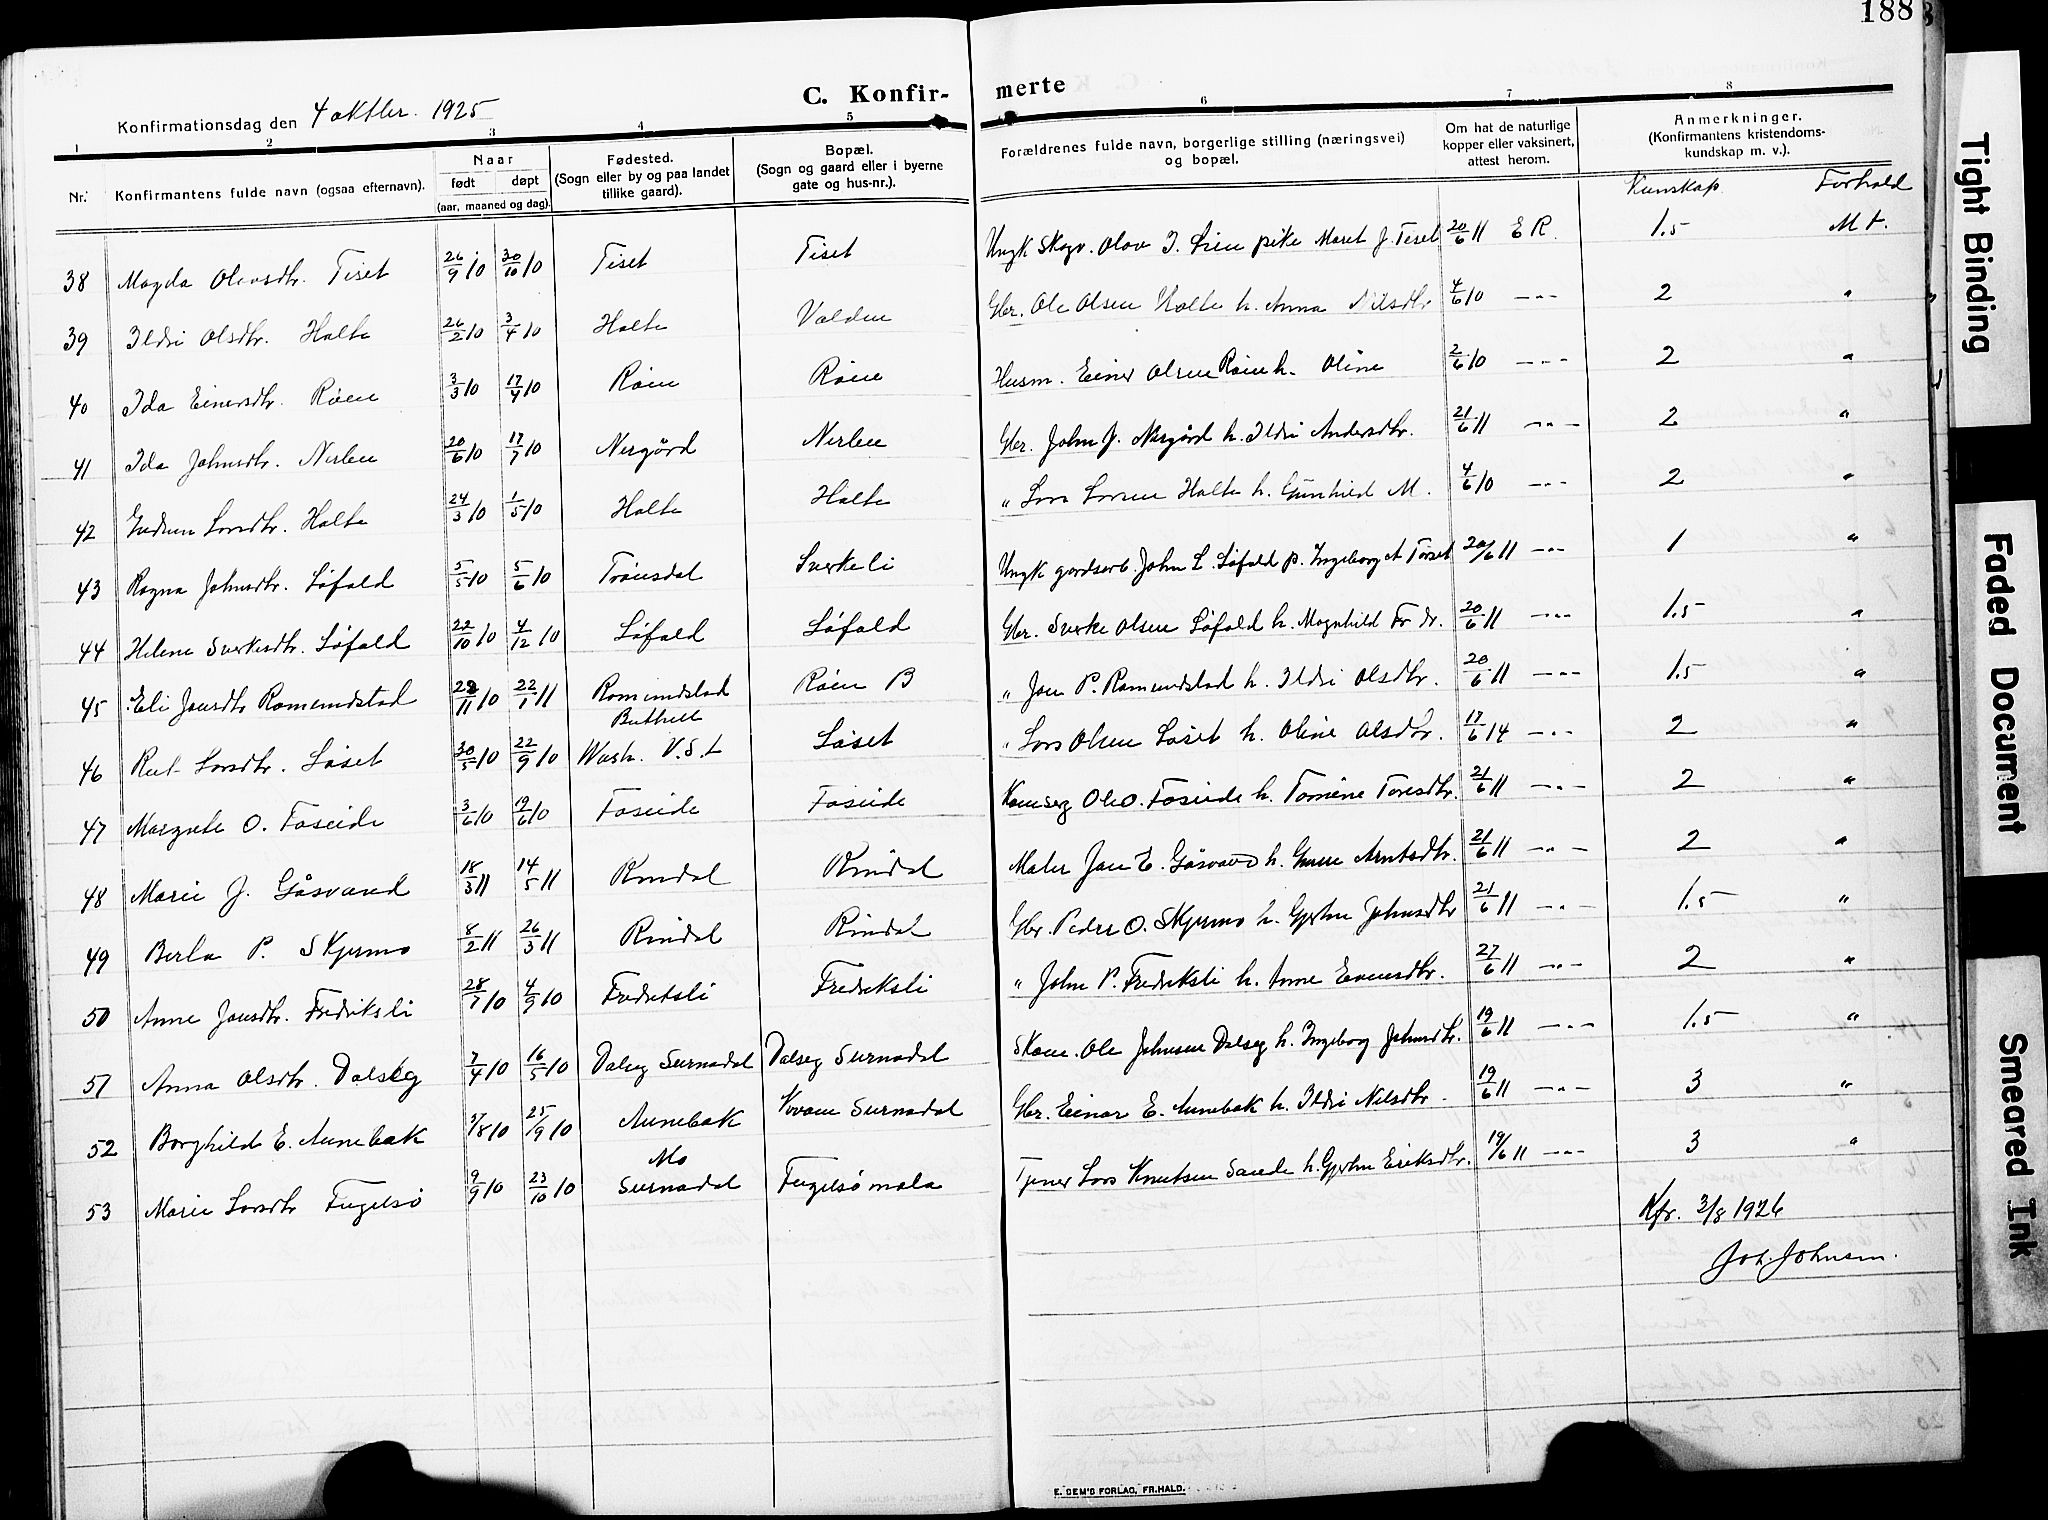 188
C. Konfir- merte
Konfirmationsdag den 4 oktbr. 1925
1 2 3 4 5 6 7 8
Nr. Konfirmantens fulde navn (ogsaa efternavn). Naar født døpt (aar, maaned og dag). Fødested. (Sogn eller by og paa landet tillike gaard). Bopæl. (Sogn og gaard eller i byerne gate og hus-nr.). Forældrenes fulde navn, borgerlige stilling (næringsvei) og bopæl. Om hat de naturlige kopper eller vaksinert, attest herom. Anmerkninger. (Konfirmantens kristendoms- kundskap m. v.).
Kunskap. Forhold
38 Magda Olavsdtr. Tiset 26/9 10 30/10 10 Tiset Tiset Ungk Skogv. Olav J. Lien pike Maret J. Tiset 20/6 11 E R. 1.5 M t.
39 Ildri Olsdtr. Holte 26/2 10 3/4 10 Holte Volden Gbr. Ole Olsen Holte h. Anna Nilsdtr 4/6 10 -"- 2 "
40 Ida Einersdtr. Röen 3/3 10 17/4 10 Röen Röen Husm. Einer Olsen Röen h. Oline 2/6 10 -"- 2 "
41 Ida Johnsdtr. Nerlen 20/6 10 17/7 10 Nergård Nerlen Gbr. John J. Nergård h. Ildri Andersdtr. 21/6 11 -"- 2 "
42 Gudrun Larsdtr. Holte 24/3 10 1/5 10 Holte Holte " Lars Larsen Holte h. Gunhild M. 4/6 10 -"- 2 "
43 Ragna Johnsdtr. Löfald 5/5 10 5/6 10 Trönsdal Sverkeli Ungk gardsarb. John L. Löfald p. Ingeborg A Törset 20/6 11 -"- 1 "
44 Helene Sverkesdtr. Löfald 22/10 10 4/12 10 Löfald Löfald Gbr. Sverke Olsen Löfald h. Magnhild Fr dr. 20/6 11 -"- 1.5 "
45 Eli Jonsdtr Romundstad 28/11 10 22/1 11 Romundstad Röen B " Jon P. Romundstad h. Ildri Olsdtr. 20/6 11 -"- 1.5 "
46 Rut Larsdtr. Löset 30/5 10 22/9 10 Buthell Wash. V.S.t Löset " Lars Olsen Löset h. Oline Olsdtr. 17/6 14 -"- 2 "
47 Margrete O. Foseide 3/6 10 19/6 10 Foseide Foseide Ole O. Foseide h. Tomine Toresdtr. 21/6 11 -"- 2 "
48 Marie J. Gåsvand 18/3 11 14/5 11 Rindal Rindal Maler Jon E. Gåsvand h. Gurene Arntsdtr. 21/6 11 -"- 2 "
49 Berta P. Skjermo 8/2 11 26/3 11 Rindal Rindal Gbr. Peder O. Skjermo h. Gjertru Johnsdtr 21/6 11 -"- 1.5 "
50 Anne Jonsdtr. Fredriksli 28/7 10 4/9 10 Fredriksli Fredriksli " John P. Fredriksli h. Anne Evensdtr. 27/6 11 -"- 2 "
51 Anna Olsdtr. Dalseg 7/4 10 16/5 10 Dalseg Surnadal Dalseg Surnadal Skom. Ole Johnsen Dalseg h. Ingeborg Johnsdtr. 19/6 11 -"- 1.5 "
52 Borghild E. Aunebak 5/8 10 25/9 10 Aunebak Kvam Surnadal Gbr. Einar E. Aunebak h. Ildri Nilsdtr. 19/6 11 -"- 3 "
53 Marie Larsdtr Fugelsö 9/9 10 23/10 10 Mo Surnadal Fugelsömala Tjener Lars Knutsen Sande h. Gjertru Eriksdtr. 19/6 11 -"- 3 "
Kfr. 3/8 1926
Joh. Johnsen.
E. SEM'S FORLAG, FR.HALD.
Tight Binding
Faded Document
Smeared Ink